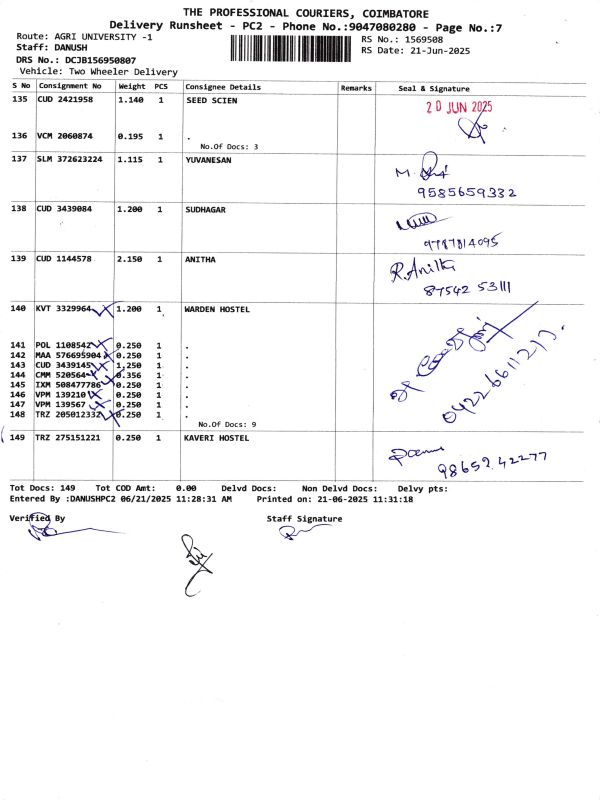 THE PROFESSIONAL COURIERS, COIMBATORE
Delivery Runsheet - PC2 - Phone No.:9047080280 - Page No.:7
Route: AGRI UNIVERSITY -1
RS No.: 1569508
Staff: DANUSH
RS Date: 21-Jun-2025
DRS No.: DCJB156950807
Vehicle: Two Wheeler Delivery
S No Consignment No Weight PCS Consignee Details Remarks Seal & Signature
135 CUD 2421958 1.140 1 SEED SCIEN
20 JUN 2025
136 VCM 2060874 0.195 1 .
No.Of Docs: 3
137 SLM 372623224 1.115 1 YUVANESAN
M.
9585659332
138 CUD 3439084 1.200 1 SUDHAGAR
9787814095
139 CUD 1144578 2.150 1 ANITHA
R.Anitha
87542 53111
140 KVT 3329964 1.200 1 WARDEN HOSTEL
141 POL 1108542 0.250 1 .
142 MAA 576695904 0.250 1 .
143 CUD 3439145 1.250 1 .
144 CMM 520564 0.356 1 .
145 IXM 508477786 0.250 1 .
146 VPM 139210 0.250 1 .
147 VPM 139567 0.250 1 .
148 TRZ 205012332 0.250 1 .
No.Of Docs: 9
0422 6611217.
149 TRZ 275151221 0.250 1 KAVERI HOSTEL
98652.42277
Tot Docs: 149 Tot COD Amt: 0.00 Delvd Docs: Non Delvd Docs: Delvy pts:
Entered By :DANUSHPC2 06/21/2025 11:28:31 AM Printed on: 21-06-2025 11:31:18
Verified By Staff Signature